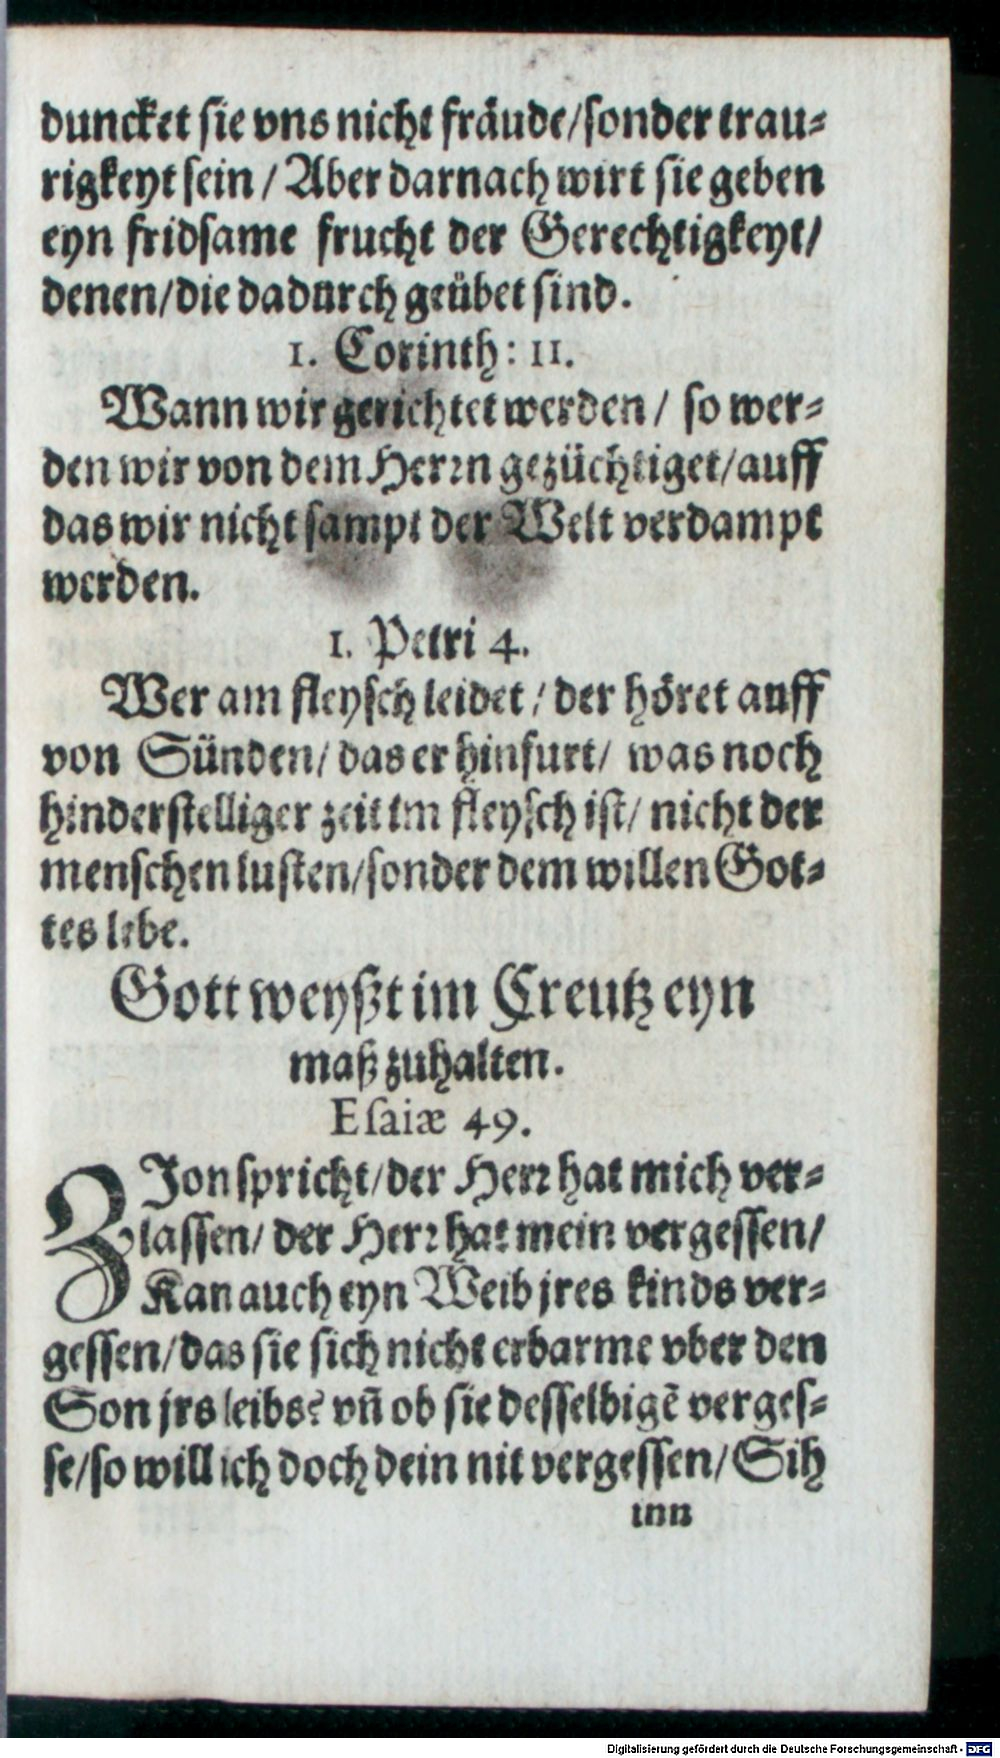 duncket sie vns nicht fräude/sonder trau-
rigkeyt sein / Aber darnach wirt sie geben
eyn fridsame frucht der Gerechtigkeyt/
denen/die dadurch geübet sind.
1. Corinth: 11.
Wann wir gerichtet werden / so wer-
den wir von dem Herrn gezüchtiget/auff
das wir nicht sampt der Welt verdampt
werden.
1. Petri 4.
Wer am fleysch leidet / der höret auff
von Sünden/ das er hinfurt/ was noch
hinderstelliger zeit im fleysch ist/ nicht der
menschen lusten/sonder dem willen Got-
tes lebe.
Gott weyßt im Creutz eyn
maß zuhalten.
Esaiæ 49.
ZJon spricht/der Herr hat mich ver-
lassen/ der Herr hat mein vergessen/
Kan auch eyn Weib jres kinds ver-
gessen/das sie sich nicht erbarme vber den
Son jrs leibs? vñ ob sie desselbigẽ verges-
se/so will ich doch dein nit vergessen/ Sih
inn
Digitalisierung gefördert durch die Deutsche Forschungsgemeinschaft - DFG